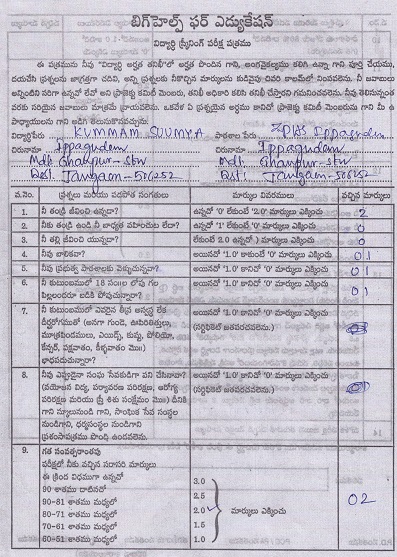 బిగ్‌హెల్ప్ ఫర్ ఎడ్యుకేషన్
విద్యార్థి స్క్రీనింగ్ పరీక్ష పత్రము
ఈ పత్రమును నీవు "విద్యార్థి అర్హత తనిఖీ"లో అర్హత పొందిన గాని, అంగవైకల్యము కలిగి ఉన్నా గాని పూర్తి చేయము,
దయచేసి ప్రశ్నలను జాగ్రత్తగా చదివి, అన్ని ప్రశ్నలకు నీకొచ్చిన మార్కులను కుడివైపు చివరి కాలమ్‌లో నింపవలెను. నీ జవాబులు
విద్యార్థిపేరు KUMMAM SOUMYA పాఠశాల పేరు ZPHS Ippagudem
చిరునామా Ippagudem చిరునామా Ippagudem
Mdl: Ghanpur-Stn Mdl: Ghanpur-Stn
Dist: Jangam-506252 Dist: Jangam-506252
వ.నెం. ప్రశ్నలు మరియు పదపోత సంగతులు మార్కుల వివరములు వచ్చిన మార్కులు
1. నీ తండ్రి జీవించి ఉన్నాడా? ఉన్నచో '0' లేకుంటే '2.0' మార్కులు ఎక్కించు 2
2. నీకు తండ్రి ఉండి నీ బాధ్యత వహించుట లేదా? ఉన్నచో '1' లేకుంటే '0' మార్కులు ఎక్కించు 0
3. నీ తల్లి జీవించి యున్నదా? లేకుంటే 2.0 ఉన్నచో ) మార్కులు ఎక్కించు 0
4. నీవు బాలికవా? అయినచో '1.0' కాకుంటే '0' మార్కులు ఎక్కించు 01
5. నీవు ప్రభుత్వ పాఠశాలకు వెళ్ళుచున్నావా? అయినచో '1.0' కానిచో '0' మార్కులు ఎక్కించు 01
6. నీ కుటుంబములో 18 సం॥ల లోపు గల అయినచో '1.0' కానిచో '0' మార్కులు ఎక్కించు 01
పిల్లలందరూ బడికి పోవుచున్నారా?
7. నీ కుటుంబములో ఎవరైన తీవ్ర అస్వస్థ లేక అయినచో '1.0' కానిచో '0' మార్కులు ఎక్కించు
దీర్ఘరోగముతో (అనగా గుండె, ఊపిరితిత్తులు, (సర్టిఫికెట్ జతపరచవలెను.)
మూత్రపిండములు, ఎయిడ్స్, కుష్ఠు, పోలియో,
క్యాన్సర్, పక్షవాతం, కీళ్ళవాతం మొ॥)
బాధపడుచున్నారా?
8. నీవు ఎప్పుడైనా సంఘ సేవకుడిగా పని చేసినావా? అయినచో '1.0' కానిచో '0' మార్కులు ఎక్కించు
(వయోజన విద్య, పర్యావరణ పరిరక్షణ, ఆరోగ్య (సర్టిఫికెట్ జతపరచవలెను.)
పరిరక్షణ మరియు స్త్రీ శిశు సంక్షేమం మొ॥) దీనికి
గాని న్యూలునుండి గాని, సాంఘిక సేవ సంస్థల
నుండిగాని, ధర్మసంస్థల నుండిగాని
ప్రశంసాపత్రము పొంది ఉండవలెను.
9. గత సంవత్సరాంతపు
పరీక్షలో నీకు వచ్చిన సరాసరి మార్కులు
ఈ క్రింది విధముగా ఉన్నచో 3.0
90 శాతము దాటినచో 2.5
90-81 శాతము మధ్యలో 2.0 మార్కులు ఎక్కించు 02
80-71 శాతము మధ్యలో 1.5
70-61 శాతము మధ్యలో 1.0
60-51 శాతము మధ్యలో